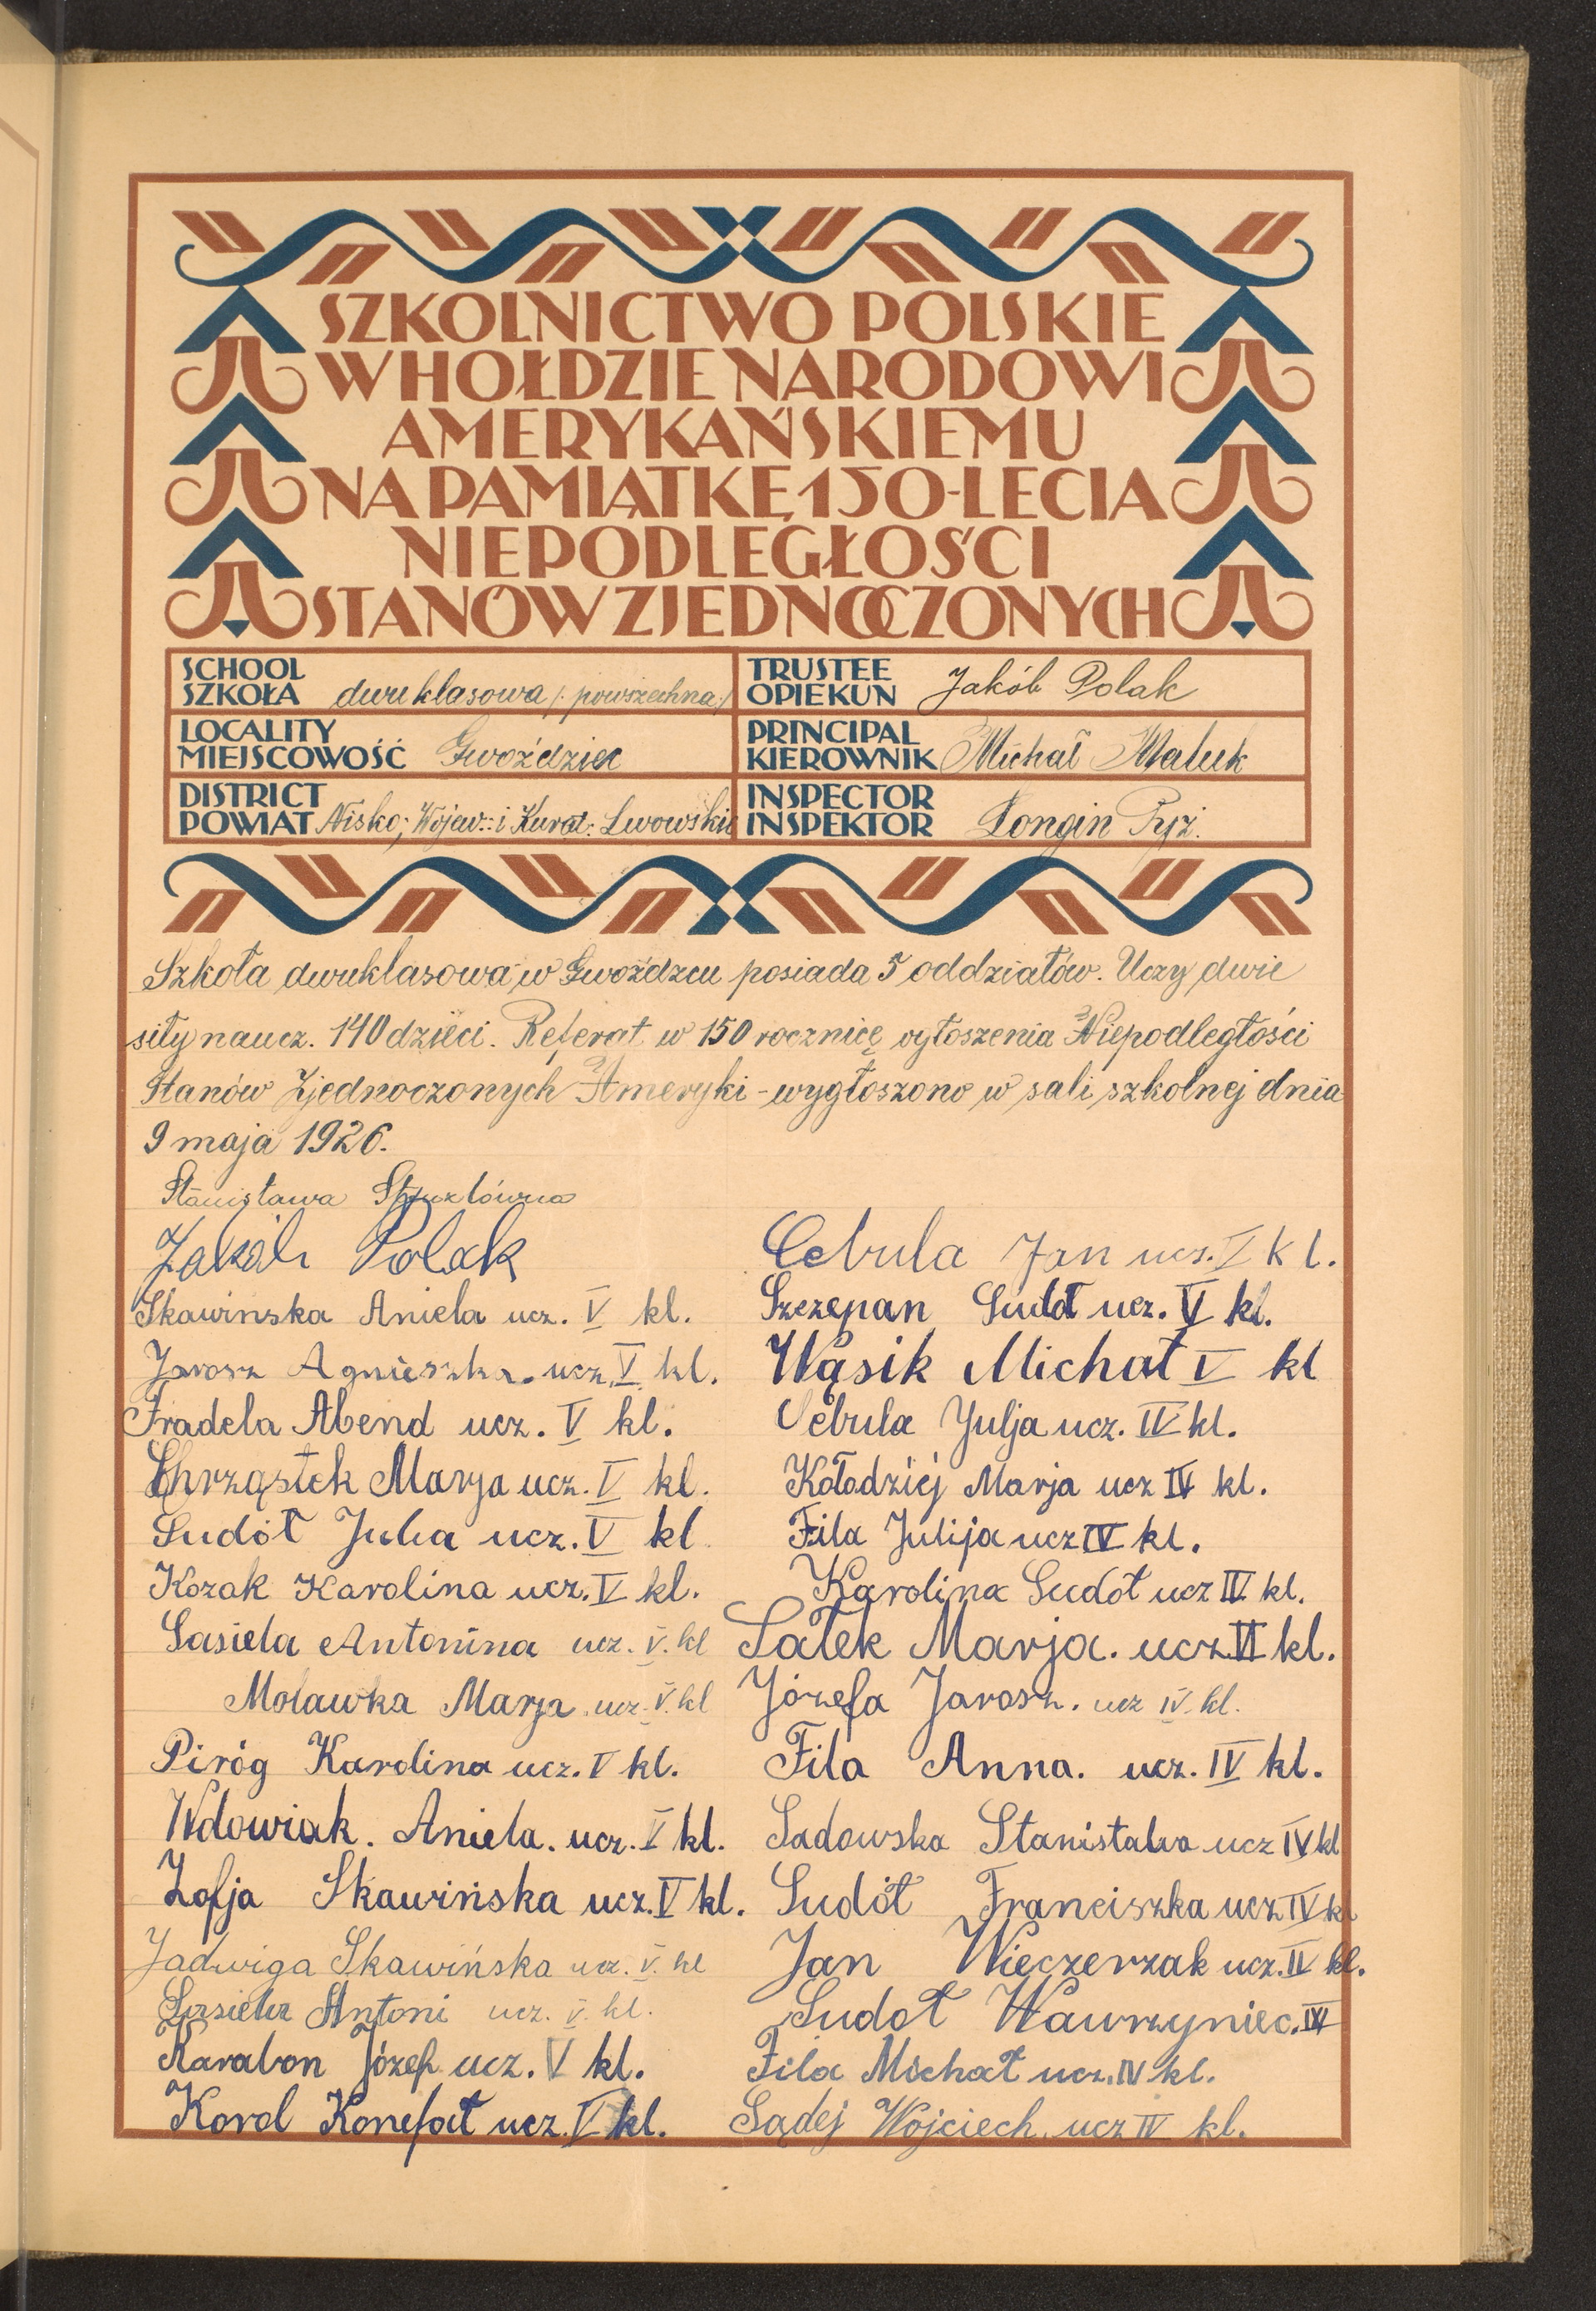 SZKOLNICTWO POLSKIE
W HOŁDZIE NARODOWI
AMERYKAŃSKIEMU
NA PAMIĄTKĘ 150-LECIA
NIEPODLEGŁOŚCI
STANÓW ZJEDNOCZONYCH
SCHOOL
SZKOŁA dwuklasowa /: powszechna :/
LOCALITY
MIEJSCOWOŚĆ Gwoździec
DISTRICT
POWIAT Nisko; Wojew:. i Kurat:. Lwowskie
TRUSTEE
OPIEKUN Jakób Polak
PRINCIPAL
KIEROWNIK Michał Maluk
INSPECTOR
INSPEKTOR Longin
Szkoła dwuklasowa w Gwoźdzcu posiada 5 oddziałów. Uczy dwie
siły naucz. 140 dzieci. Referat w 150 rocznicę ogłoszenia Niepodległości
Stanów Zjednoczonych Ameryki - wygłoszono w sali szkolnej dnia
9 maja 1926.
Stanisława
Jakób Polak
Skawinska Aniela ucz. V kl.
Jarosz Agnieszka. ucz. V kl.
Fradela Abend ucz. V kl.
Chrząstek Marja ucz. V kl.
Sudół Julia ucz. V kl
Kozak Karolina ucz. V kl.
Sasiela Antonina ucz. V. kl
Moławka Marja ucz. V. kl
Piróg Karolina ucz. V kl.
Wdowiak. Aniela. ucz. V kl.
Zofja Skawińska ucz. V kl.
Jadwiga Skawińska ucz. V. kl
Sasiela Antoni ucz. V. kl.
Karabon Józef ucz. V kl.
Karol Konefał ucz. V kl.
Cebula Jan ucz. V kl.
Szczepan Sudoł ucz. V kl.
Wąsik Michał V kl
Cebula Julja ucz. IV kl.
Kołodziej Marja ucz IV kl.
Fila Julija ucz IV kl.
Karolina Sudoł ucz IV kl.
Sałek Marja. ucz. VI kl.
Józefa Jarosz. ucz IV. kl.
Fila Anna. ucz. IV kl.
Sadowska Stanisława ucz IV kl
Sudół Franciszka ucz IV kl
Jan Wieczerzak ucz. IV kl.
Sudoł Wawrzyniec. IV
Fila Michał ucz. IV kl.
Sądej Wojciech ucz IV kl.